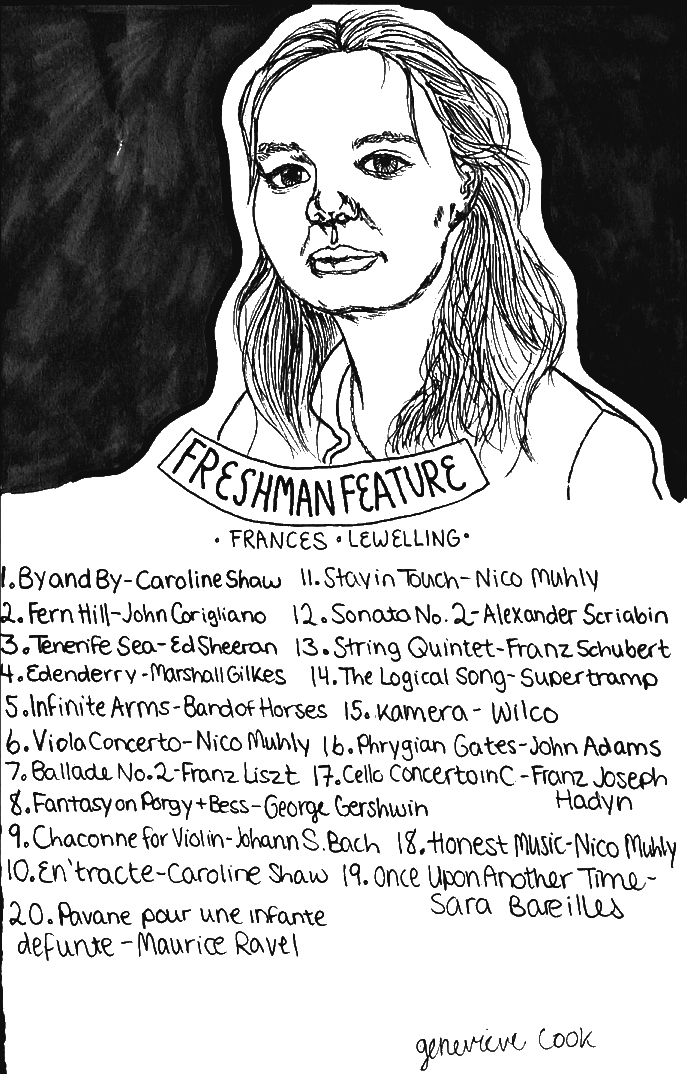 FRESHMAN FEATURE
• FRANCES • LEWELLING •
1. By and By - Caroline Shaw
2. Fern Hill - John Corigliano
3. Tenerife Sea - Ed Sheeran
4. Edenderry - Marshall Gilkes
5. Infinite Arms - Band of Horses
6. Viola Concerto - Nico Muhly
7. Ballade No. 2 - Franz Liszt
8. Fantasy on Porgy + Bess - George Gershwin
9. Chaconne for Violin - Johann S. Bach
10. En'tracte - Caroline Shaw
11. Stay in Touch - Nico Muhly
12. Sonata No. 2 - Alexander Scriabin
13. String Quintet - Franz Schubert
14. The Logical Song - Supertramp
15. Kamera - Wilco
16. Phrygian Gates - John Adams
17. Cello Concerto in C - Franz Joseph
Hadyn
18. Honest Music - Nico Muhly
19. Once Upon Another Time -
Sara Bareilles
20. Pavane pour une infante
defunte - Maurice Ravel
genevieve Cook